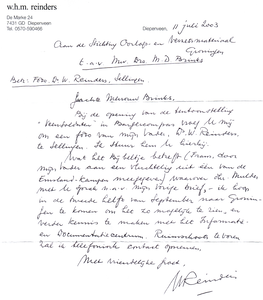 w.h.m. reinders
De Marke 24
7431 GD Diepenveen
Tel. 0570-590466
Diepenveen, 11 juli 2003
Aan de Stichting Oorlogs- en Verzetsmateriaal
Groningen
t.a.v. Mw. Drs. M. D. Brinks
Betr: Foto Dr. W. Reinders, Sellingen.
Geachte Mevrouw Brinks,
Bij de opening van de tentoonstelling
in Burgercompas vroeg U mij
om een foto van mijn vader, Dr. W. Reinders,
te Sellingen. Ik stuur hem U hierbij.
Wat het Bijbeltje betreft (Frans, door
mijn vader aan een vluchteling uit een van de
Emsland-Kampen meegegeven) waarover Mw. Mulder
met U sprak n.a.v. mijn vorige brief, - ik hoop
in de tweede helft van September naar Gronin-
gen te komen om het zo mogelijk te zien, en
verder kennis te maken met het Informatie-
en Documentatiecentrum. Ruimschoots tevoren
zal ik telefonisch contact opnemen.
Met vriendelijke groet,
WReinders